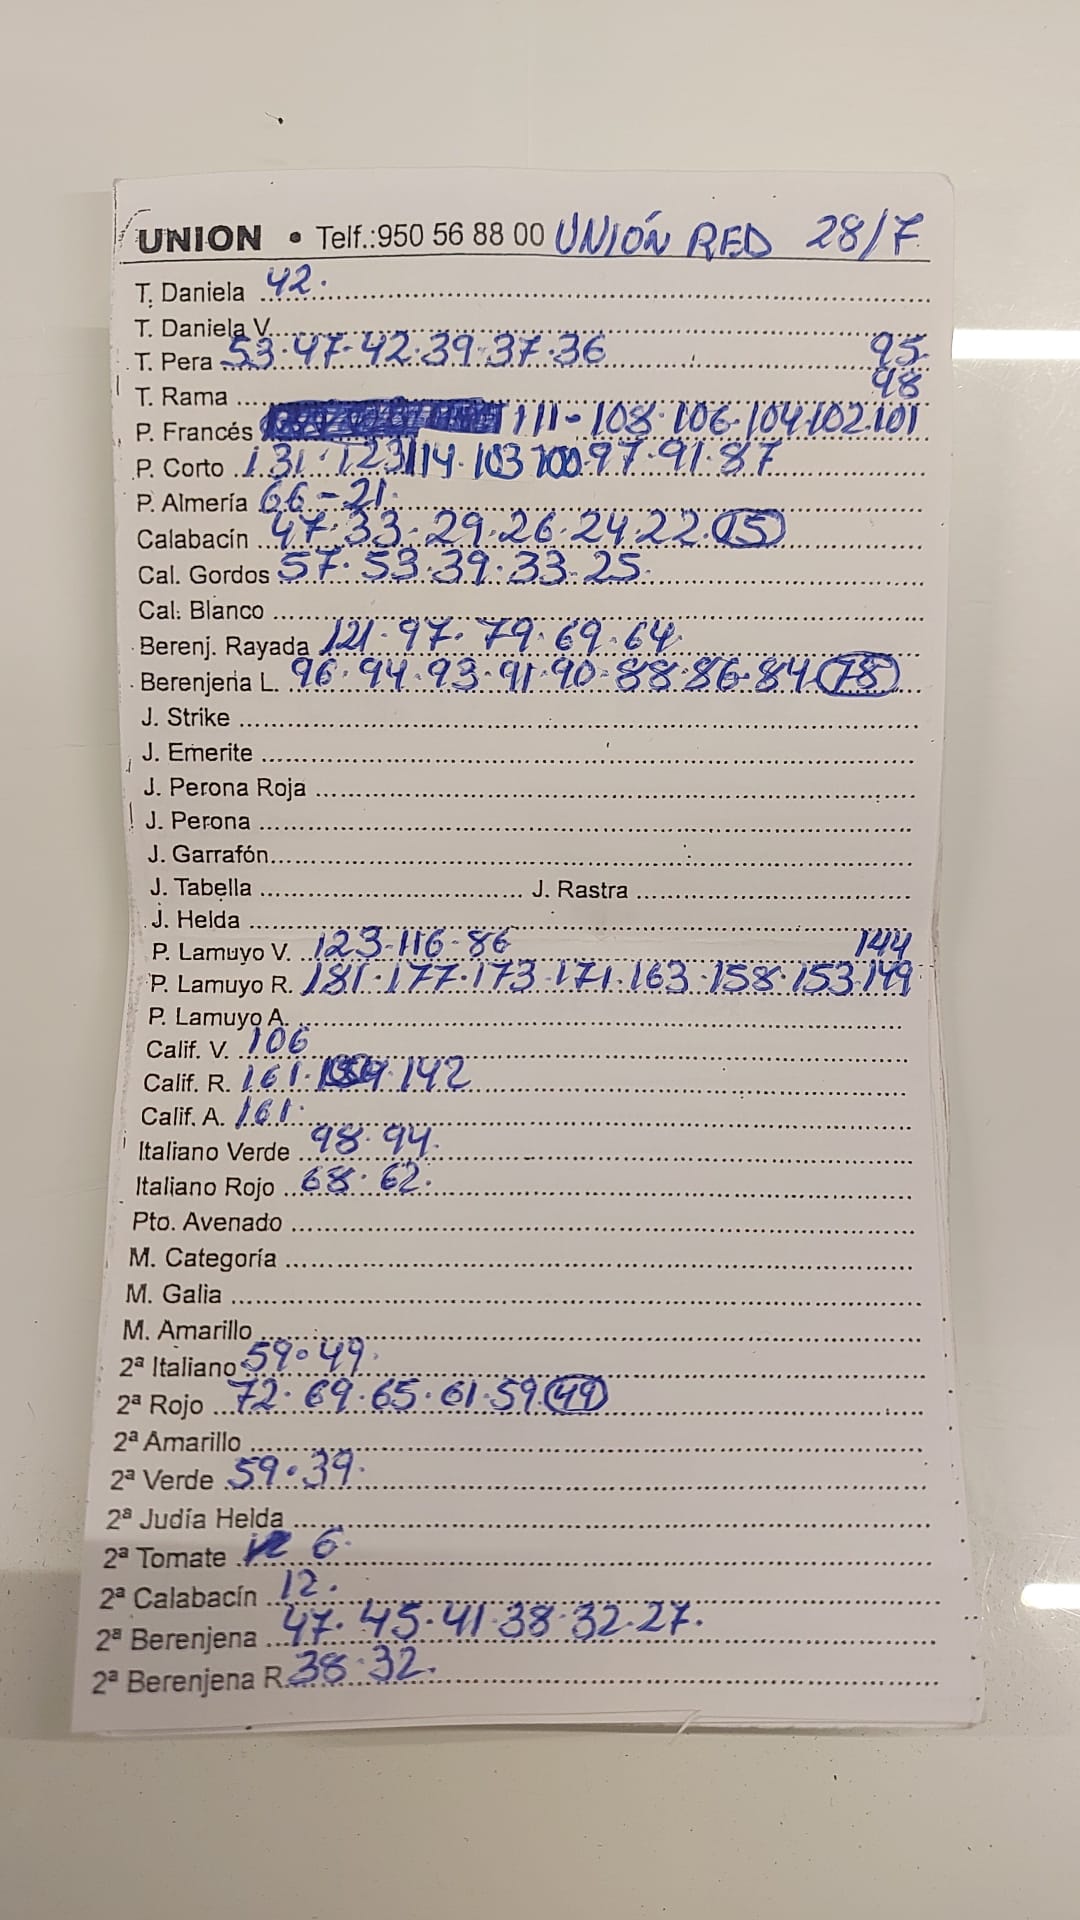 UNION • Telf.:950 56 88 00 UNIÓN RED 28/7
T. Daniela 42.
T. Daniela V.
T. Pera 53.47-42.39.37.36 95
T. Rama 98
P. Francés 111-108.106.104.102.101
P. Corto 131.123.114.103.100.97.91.87
P. Almería 66-21.
Calabacín 47.33-29.26.24.22.15
Cal. Gordos 57.53.39.33-25.
Cal. Blanco
Berenj. Rayada 121.97.79.69.64.
Berenjena L. 96.94.93.91.90-88.86-84.78
J. Strike
J. Emerite
J. Perona Roja
J. Perona
J. Garrafón
J. Tabella J. Rastra
J. Helda
P. Lamuyo V. 123-116-86 144
P. Lamuyo R. 181.177.173-171.163.158.153.149
P. Lamuyo A.
Calif. V. 106
Calif. R. 161. 142
Calif. A. 161.
Italiano Verde 98.94.
Italiano Rojo 68.62.
Pto. Avenado
M. Categoría
M. Galia
M. Amarillo
2ª Italiano 59.49.
2ª Rojo 72.69.65.61.59.49
2ª Amarillo
2ª Verde 59.39.
2ª Judía Helda
2ª Tomate 6.
2ª Calabacín 12.
2ª Berenjena 47.45.41.38.32.27.
2ª Berenjena R. 38.32.